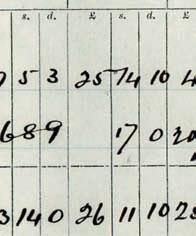 s. d. £ s. d. £
5 3 25 14 10
6 8 9 17 0
3 14 0 26 11 10